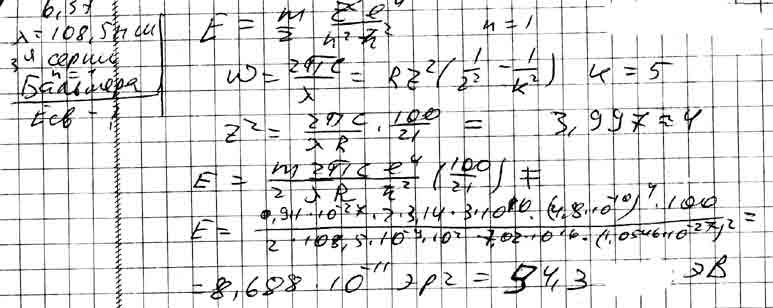 6,57
λ = 108,5 нм
3я серии
n = 1
Бальмера
Eсв - ?
E = m/2 Z² e⁴ / n² ħ²   n = 1
ω = 2πc/λ = RZ² (1/2² - 1/k²)   k = 5
Z² = 2πc/λR · 100/21 = 3,997 ≈ 4
E = m/2 2πc/λR e⁴/ħ² (100/21) =
E = 0,911·10⁻²⁷·2·3,14·3·10¹⁰·(4,8·10⁻¹⁰)⁴·100 / 2·108,5·10⁻⁷·10²·2,02·10¹⁶·(1,0546·10⁻²⁷)² =
= 8,688 · 10⁻¹¹ эрг = 54,3 эВ